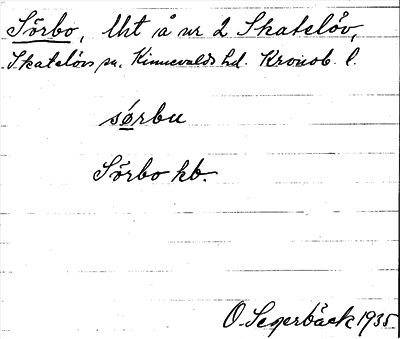 Sörbo, Uht å nr 2 Skatelöv,
Skatelövs sn. Kinnevalds hd. Kronob. l.
sørbu
Sörbo kb.
O. Segerbäck 1935